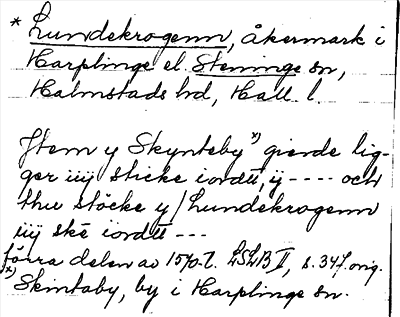 * Lundekrogenn, åkermark i
Harplinge el. Steninge sn,
Halmstads hd, Hall. l.
Jtem y Skynteby x) gierde lig-
ger iiij sticke iordtt, ij ---- och
thu stöcke y / Lundekrogenn
iiij skē iordtt ---
förra delen av 1570-t. LSLB II, s. 347. orig.
x) Skintaby, by i Harplinge sn.